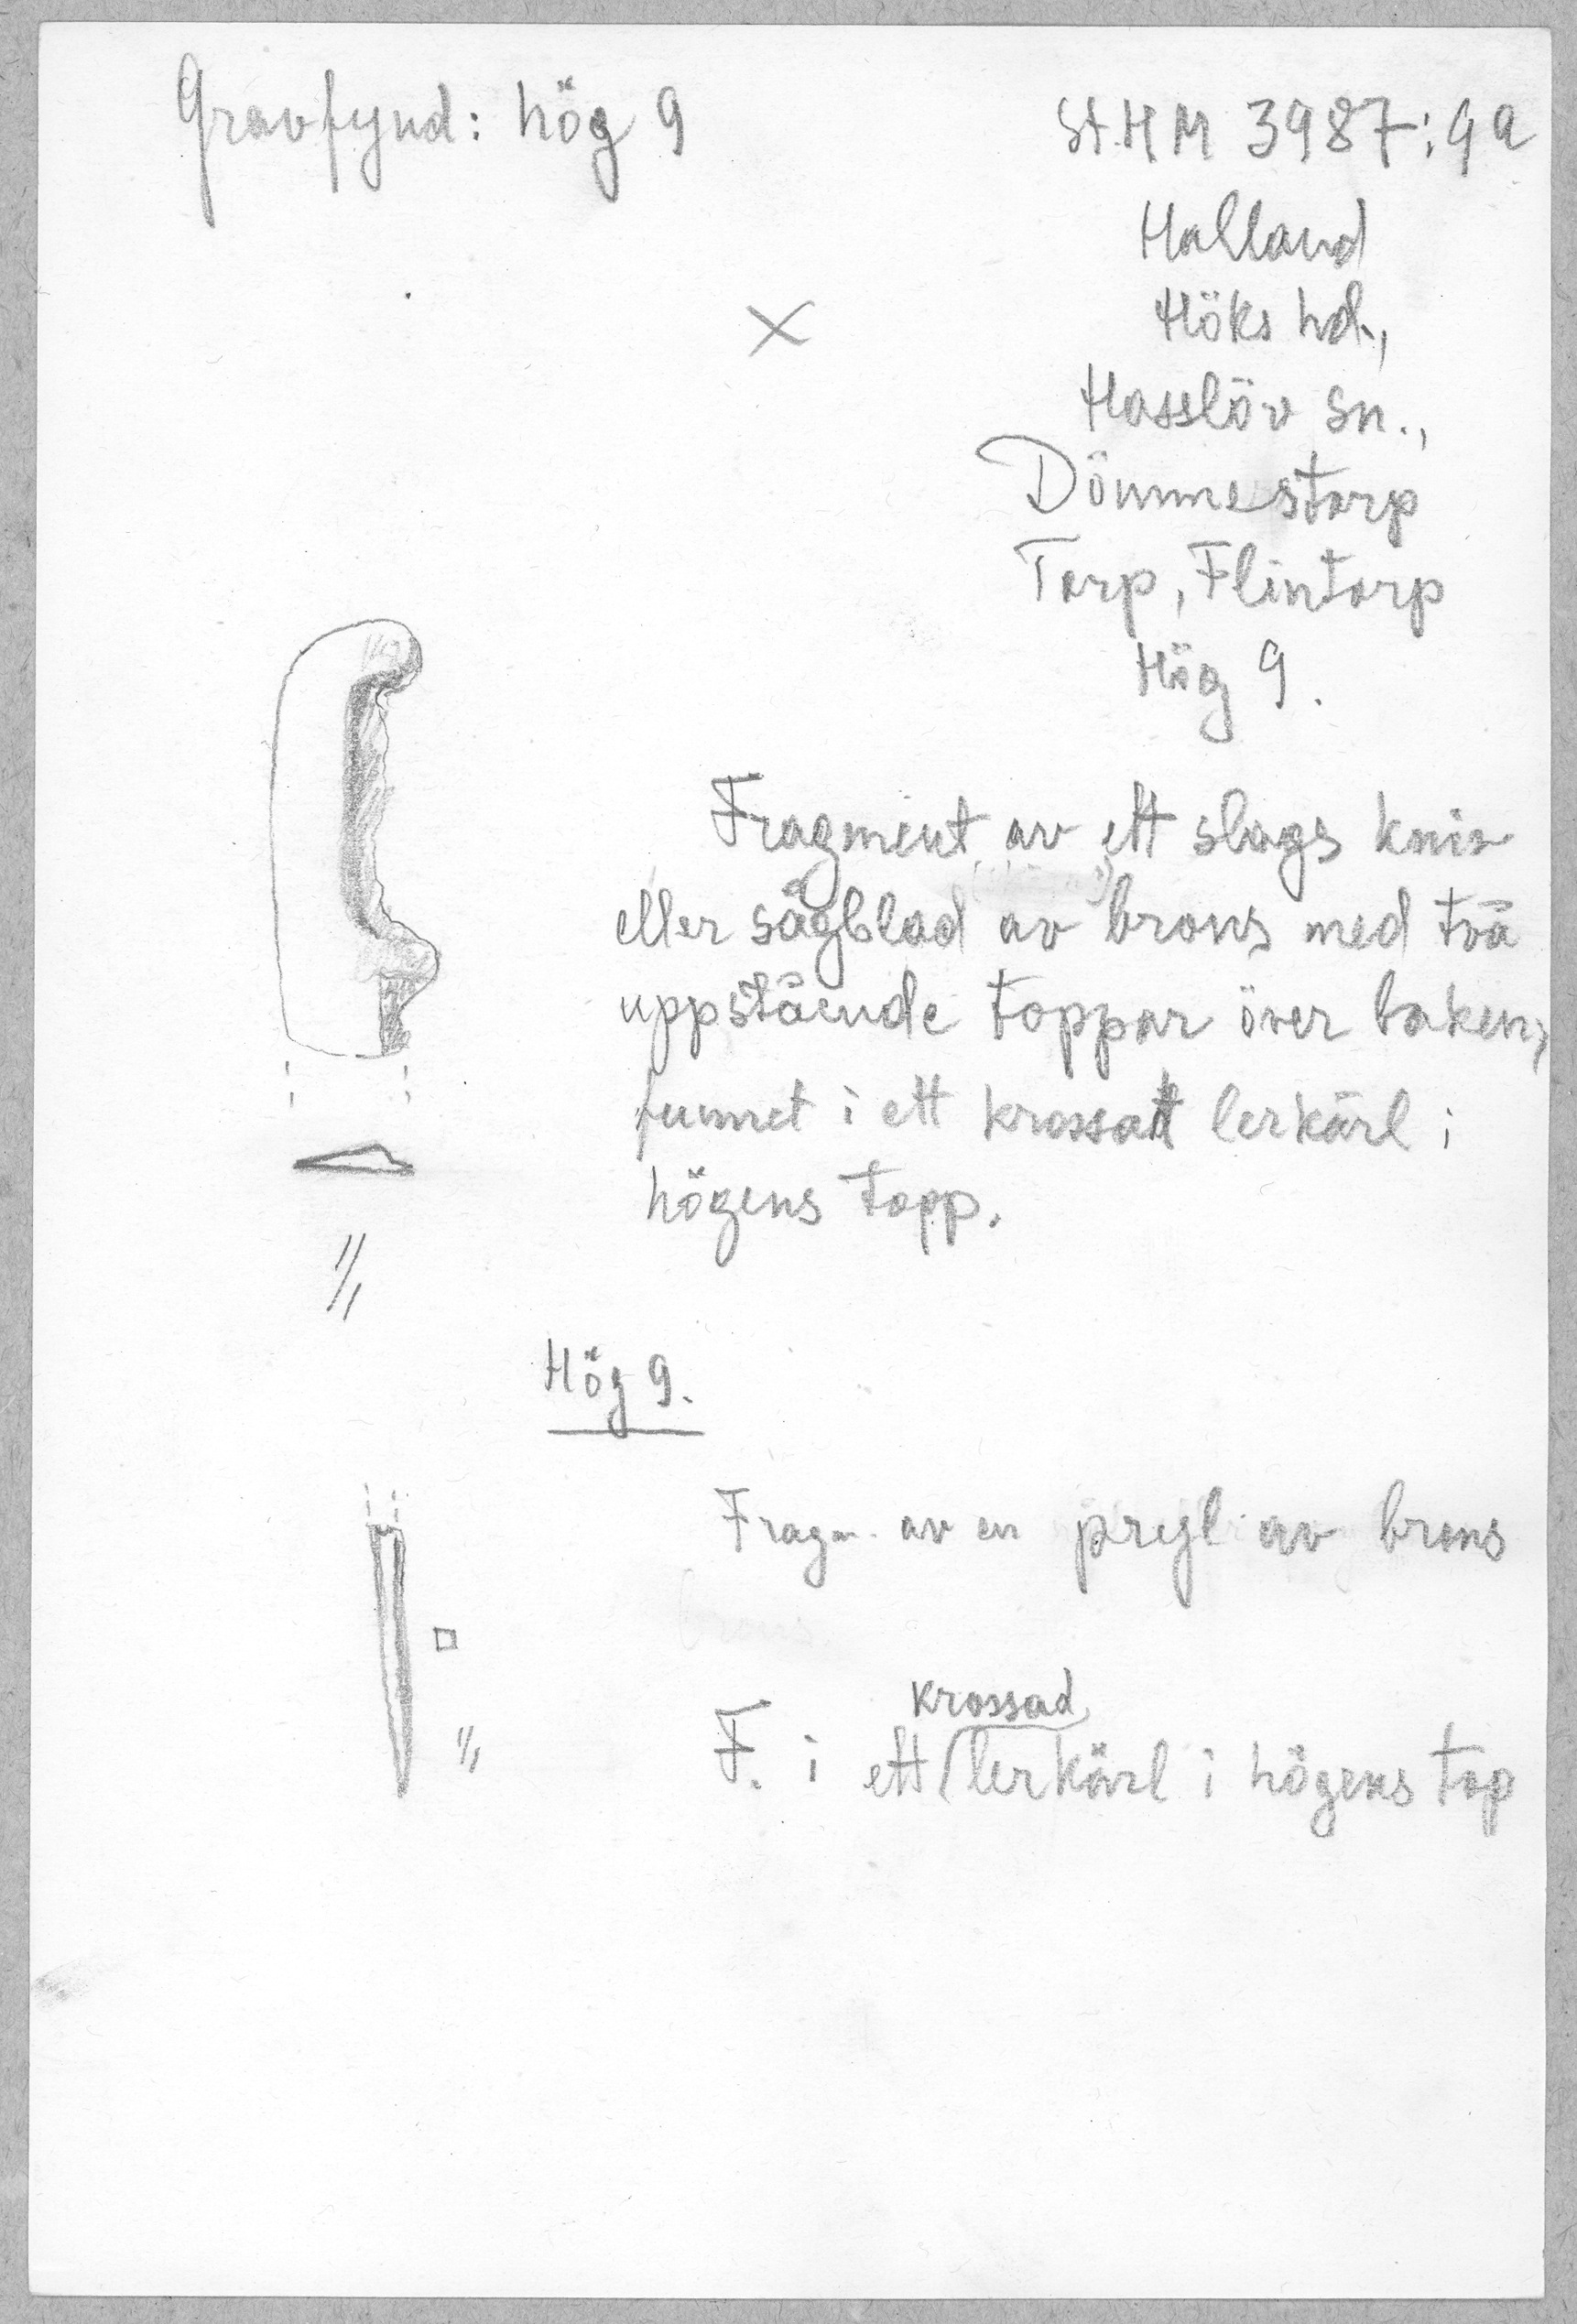 Gravfynd: hög 9
St.HM 3987:9a
Halland
Höks hd.,
Hasslöv sn.,
Dömmestorp
Torp, Flintorp
Hög 9.
Fragment av ett slags kniv
eller sågblad av brons med två
uppstående toppar över baken,
funnet i ett krossatt lerkärl i
högens topp.
1/1
Hög 9.
Fragm. av en pryl av brons
brons
krossad
1/1
F. i ett lerkärl i högens top